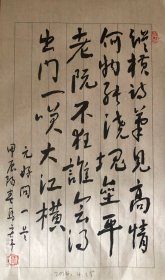 纵横诗笔见高情
何物能浇块垒平
老阮不狂谁会得
出门一笑大江横
元好问一首
甲辰
2024.4.25